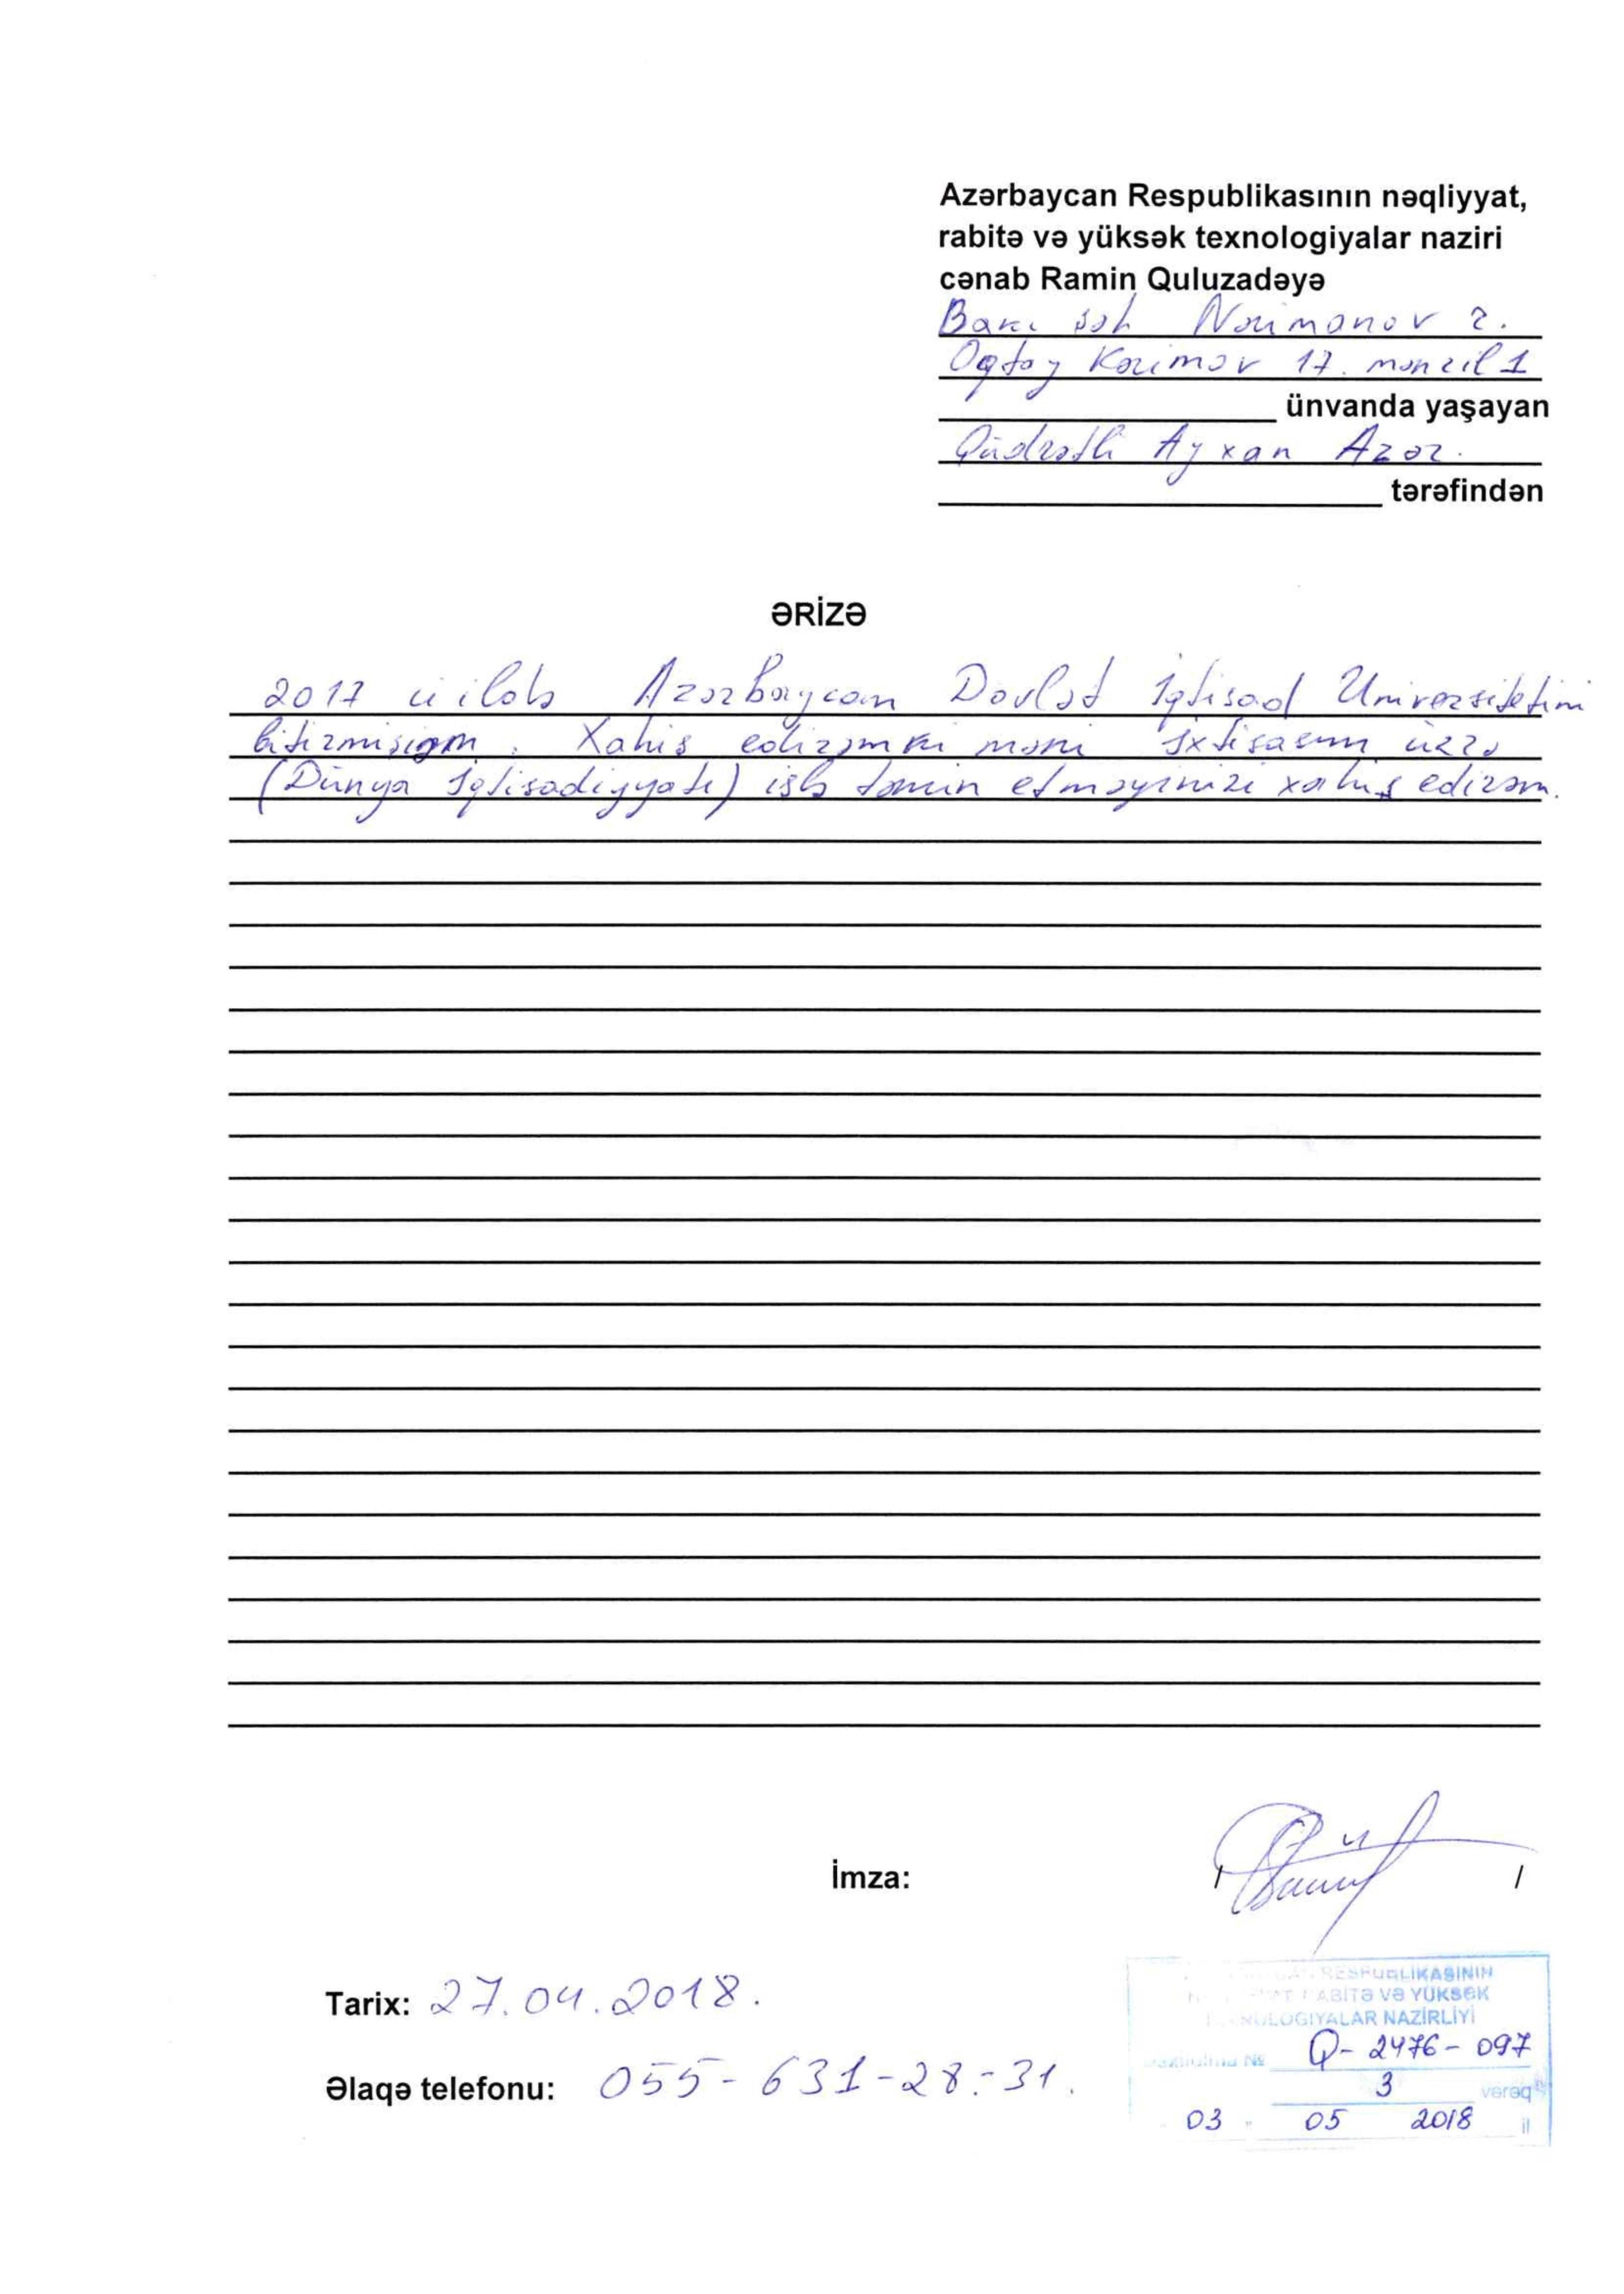 Azərbaycan Respublikasının nəqliyyat,
rabitə və yüksək texnologiyalar naziri
cənab Ramin Quluzadəyə
Bakı şəh Nərimanov r.
Oqtay Kərimov 17. mənzil 1
ünvanda yaşayan
Qüdrətli Ayxan Azər.
tərəfindən
ƏRİZƏ
2017 ci ildə Azərbaycan Dövlət İqtisad Universitetini
bitirmişəm. Xahiş edirəm ki məni ixtisasım üzrə
(Dünya İqtisadiyyatı) işlə təmin etməyinizi xahiş edirəm.
İmza: / /
Tarix: 27.04.2018.
Əlaqə telefonu: 055-631-28-31.
RESPUBLİKASININ
RABİTƏ VƏ YÜKSƏK
TEXNOLOGİYALAR NAZİRLİYİ
№ Q-2476-097
3 vərəq
03 05 2018 il